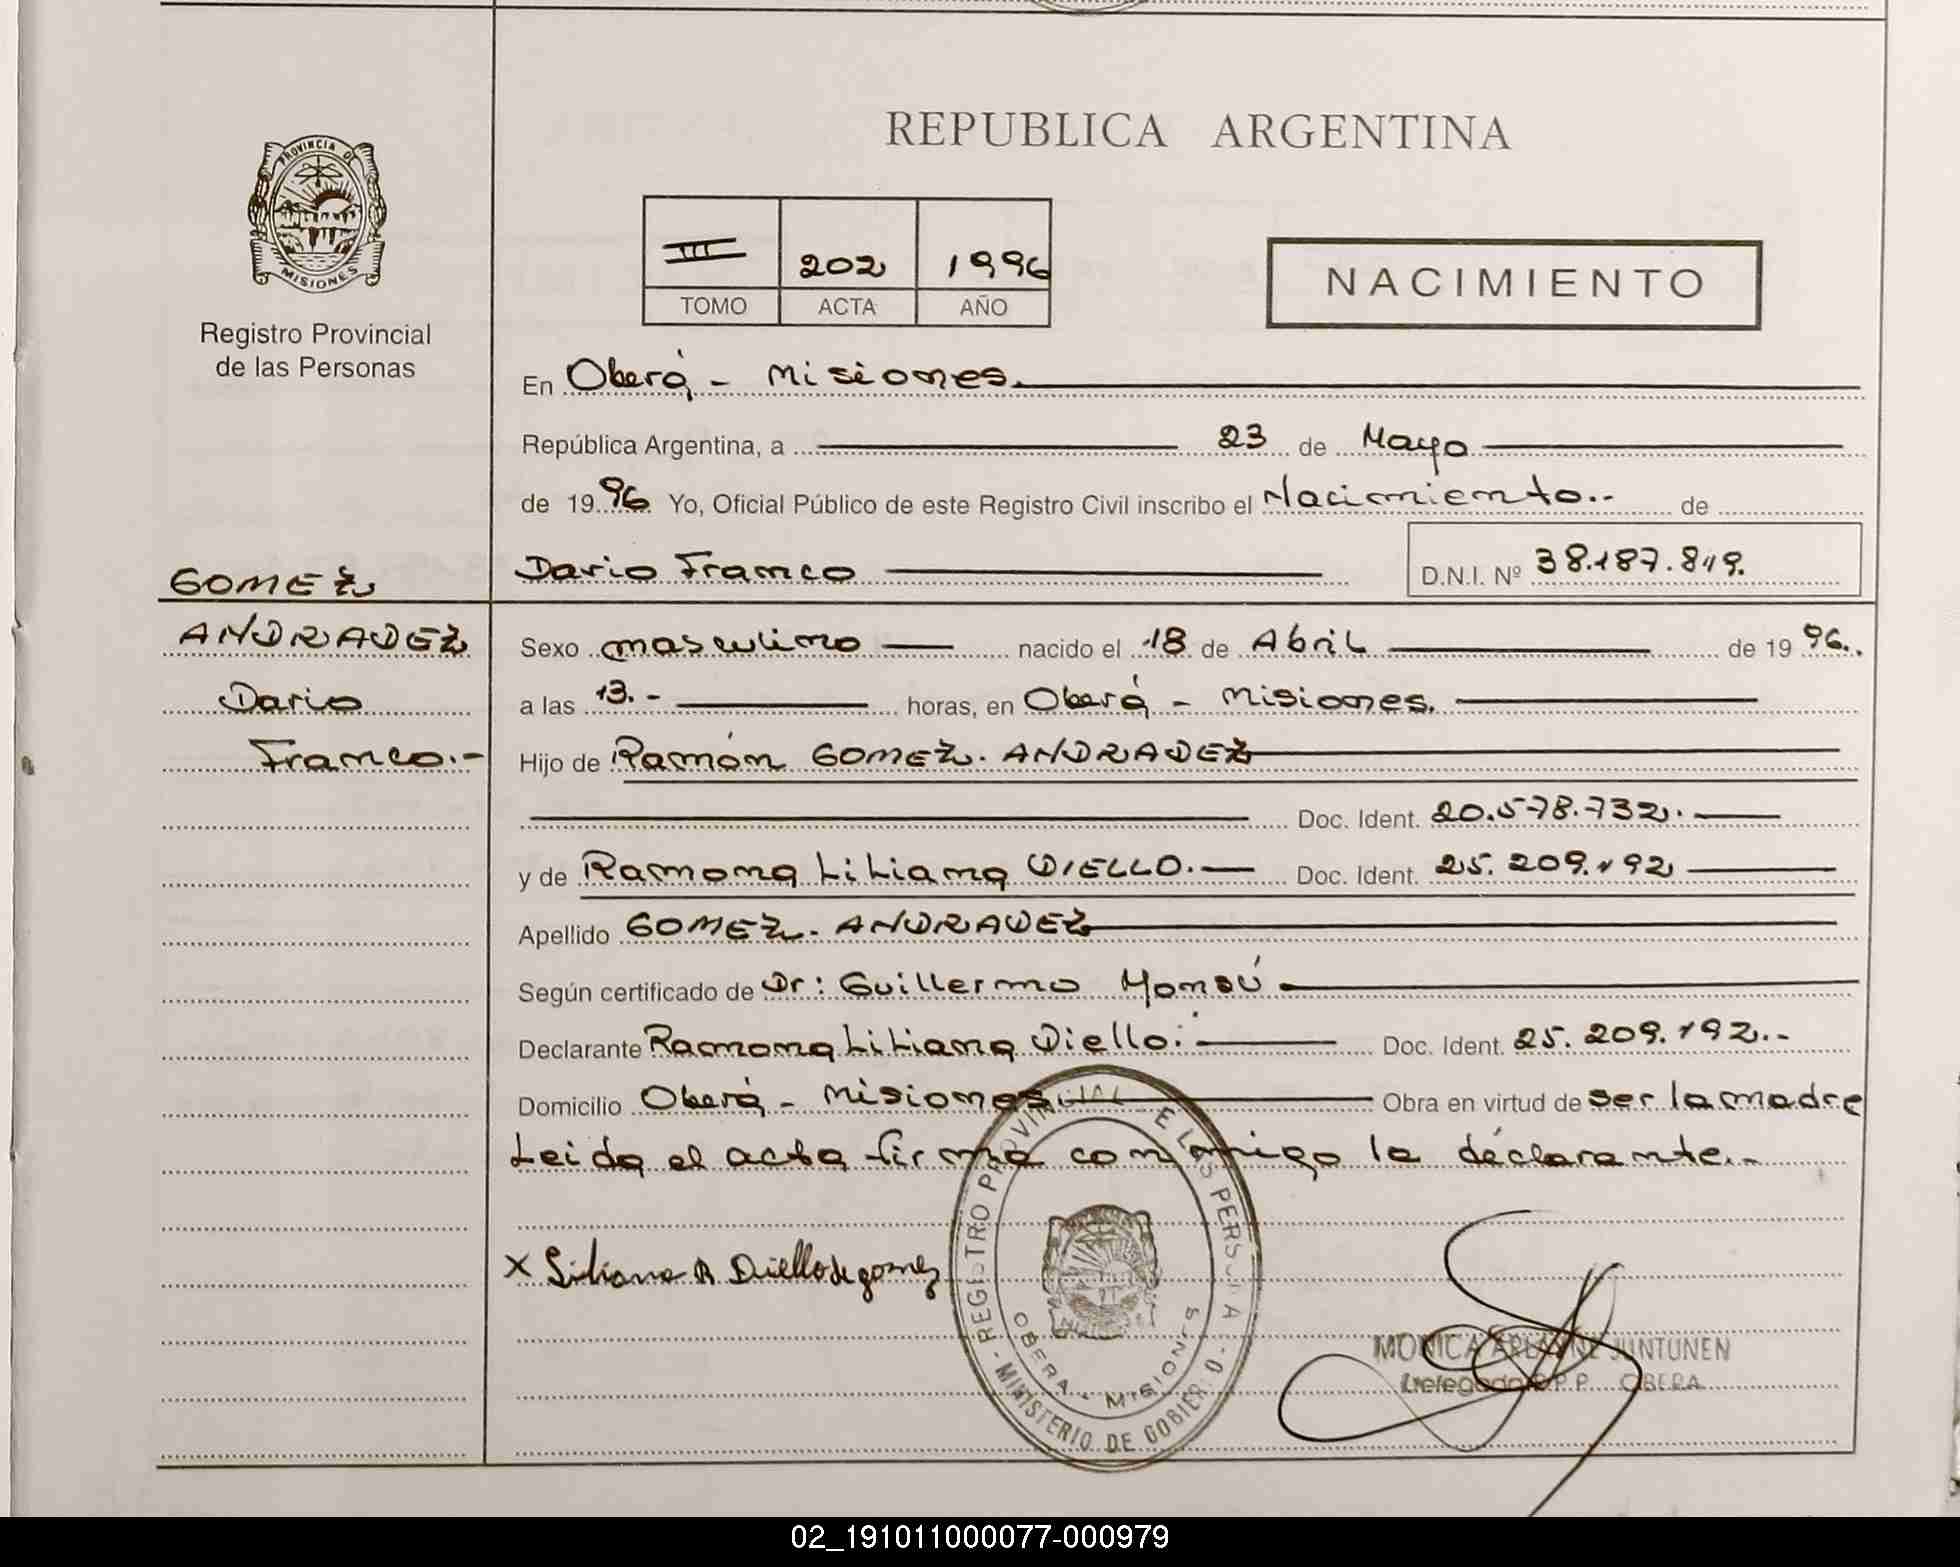 REPUBLICA ARGENTINA
PROVINCIA DE
MISIONES
Registro Provincial
de las Personas
III 202 1996
TOMO ACTA AÑO
NACIMIENTO
En Oberá - Misiones.
República Argentina, a 23 de Mayo
de 1996 Yo, Oficial Público de este Registro Civil inscribo el Nacimiento.- de
Dario Franco D.N.I. Nº 38.187.819.
GOMEZ
ANDRADEZ
Dario
Franco.-
Sexo masculino nacido el 18 de Abril de 1996.
a las 13.- horas, en Oberá - Misiones.
Hijo de Ramón GOMEZ. ANDRADEZ
Doc. Ident. 20.578.732.
y de Ramona Liliana DIELLO. Doc. Ident. 25.209.192
Apellido GOMEZ. ANDRADEZ
Según certificado de Dr: Guillermo Monsú
Declarante Ramona Liliana Diello. Doc. Ident. 25.209.192.-
Domicilio Oberá - Misiones Obra en virtud de ser la madre
Leida el acta firma conmigo la declarante.-
X Liliana R Diello de gomez
REGISTRO PROVINCIAL DE LAS PERSONAS
OBERA - MISIONES
- MINISTERIO DE GOBIERNO -
MONICA JUNTUNEN
Delegada R.P.P. OBERA
02_191011000077-000979